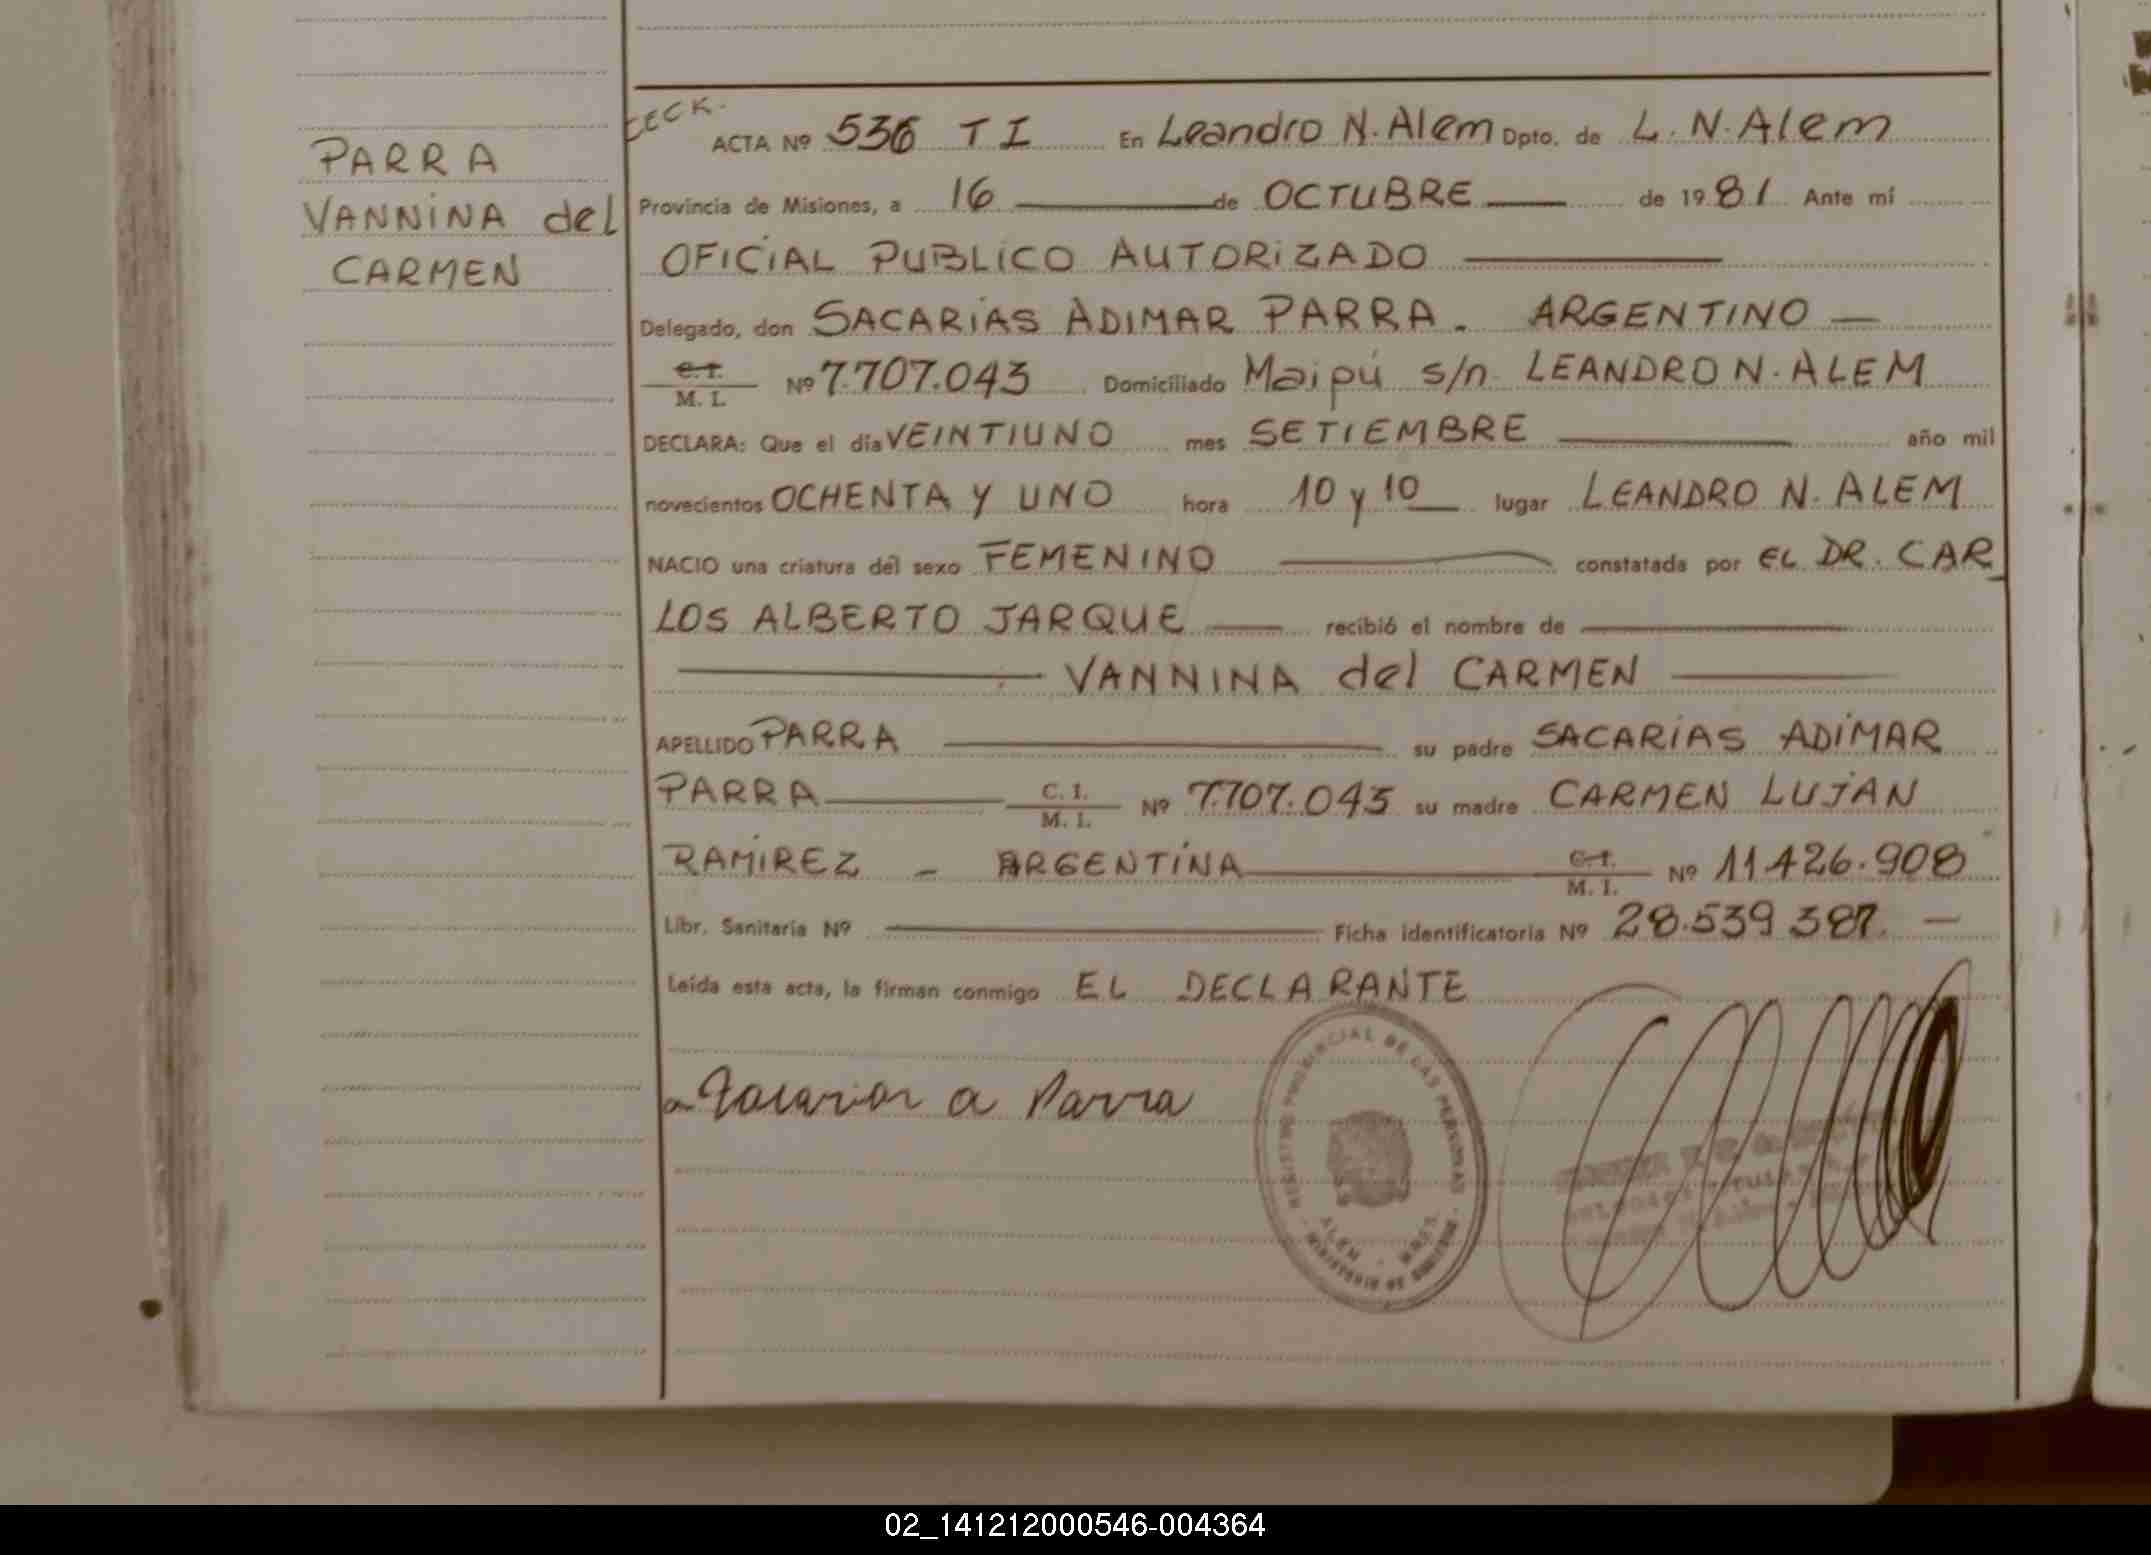 PARRA
VANNINA del
CARMEN
ECK.
ACTA Nº 536 T I En Leandro N. Alem Dpto. de L. N. Alem
Provincia de Misiones, a 16 de OCTUBRE de 1981 Ante mí
OFICIAL PUBLICO AUTORIZADO
Delegado, don SACARIAS ADIMAR PARRA. ARGENTINO
C. I.
M. I. Nº 7.707.043 Domiciliado Maipú s/n LEANDRO N. ALEM
DECLARA: Que el día VEINTIUNO mes SETIEMBRE año mil
novecientos OCHENTA Y UNO hora 10 y 10 lugar LEANDRO N. ALEM
NACIO una criatura del sexo FEMENINO constatada por EL DR. CAR_
LOS ALBERTO JARQUE recibió el nombre de
VANNINA del CARMEN
APELLIDO PARRA su padre SACARIAS ADIMAR
PARRA C. I. M. I. Nº 7.707.043 su madre CARMEN LUJAN
RAMIREZ - ARGENTINA C. I. M. I. Nº 11.426.908
Libr. Sanitaria Nº Ficha identificatoria Nº 28.539.387. -
Leída esta acta, la firman conmigo EL DECLARANTE
a Parra
REGISTRO PROVINCIAL DE LAS PERSONAS
ALEM - MNES.
MINISTERIO DE GOBIERNO
02_141212000546-004364